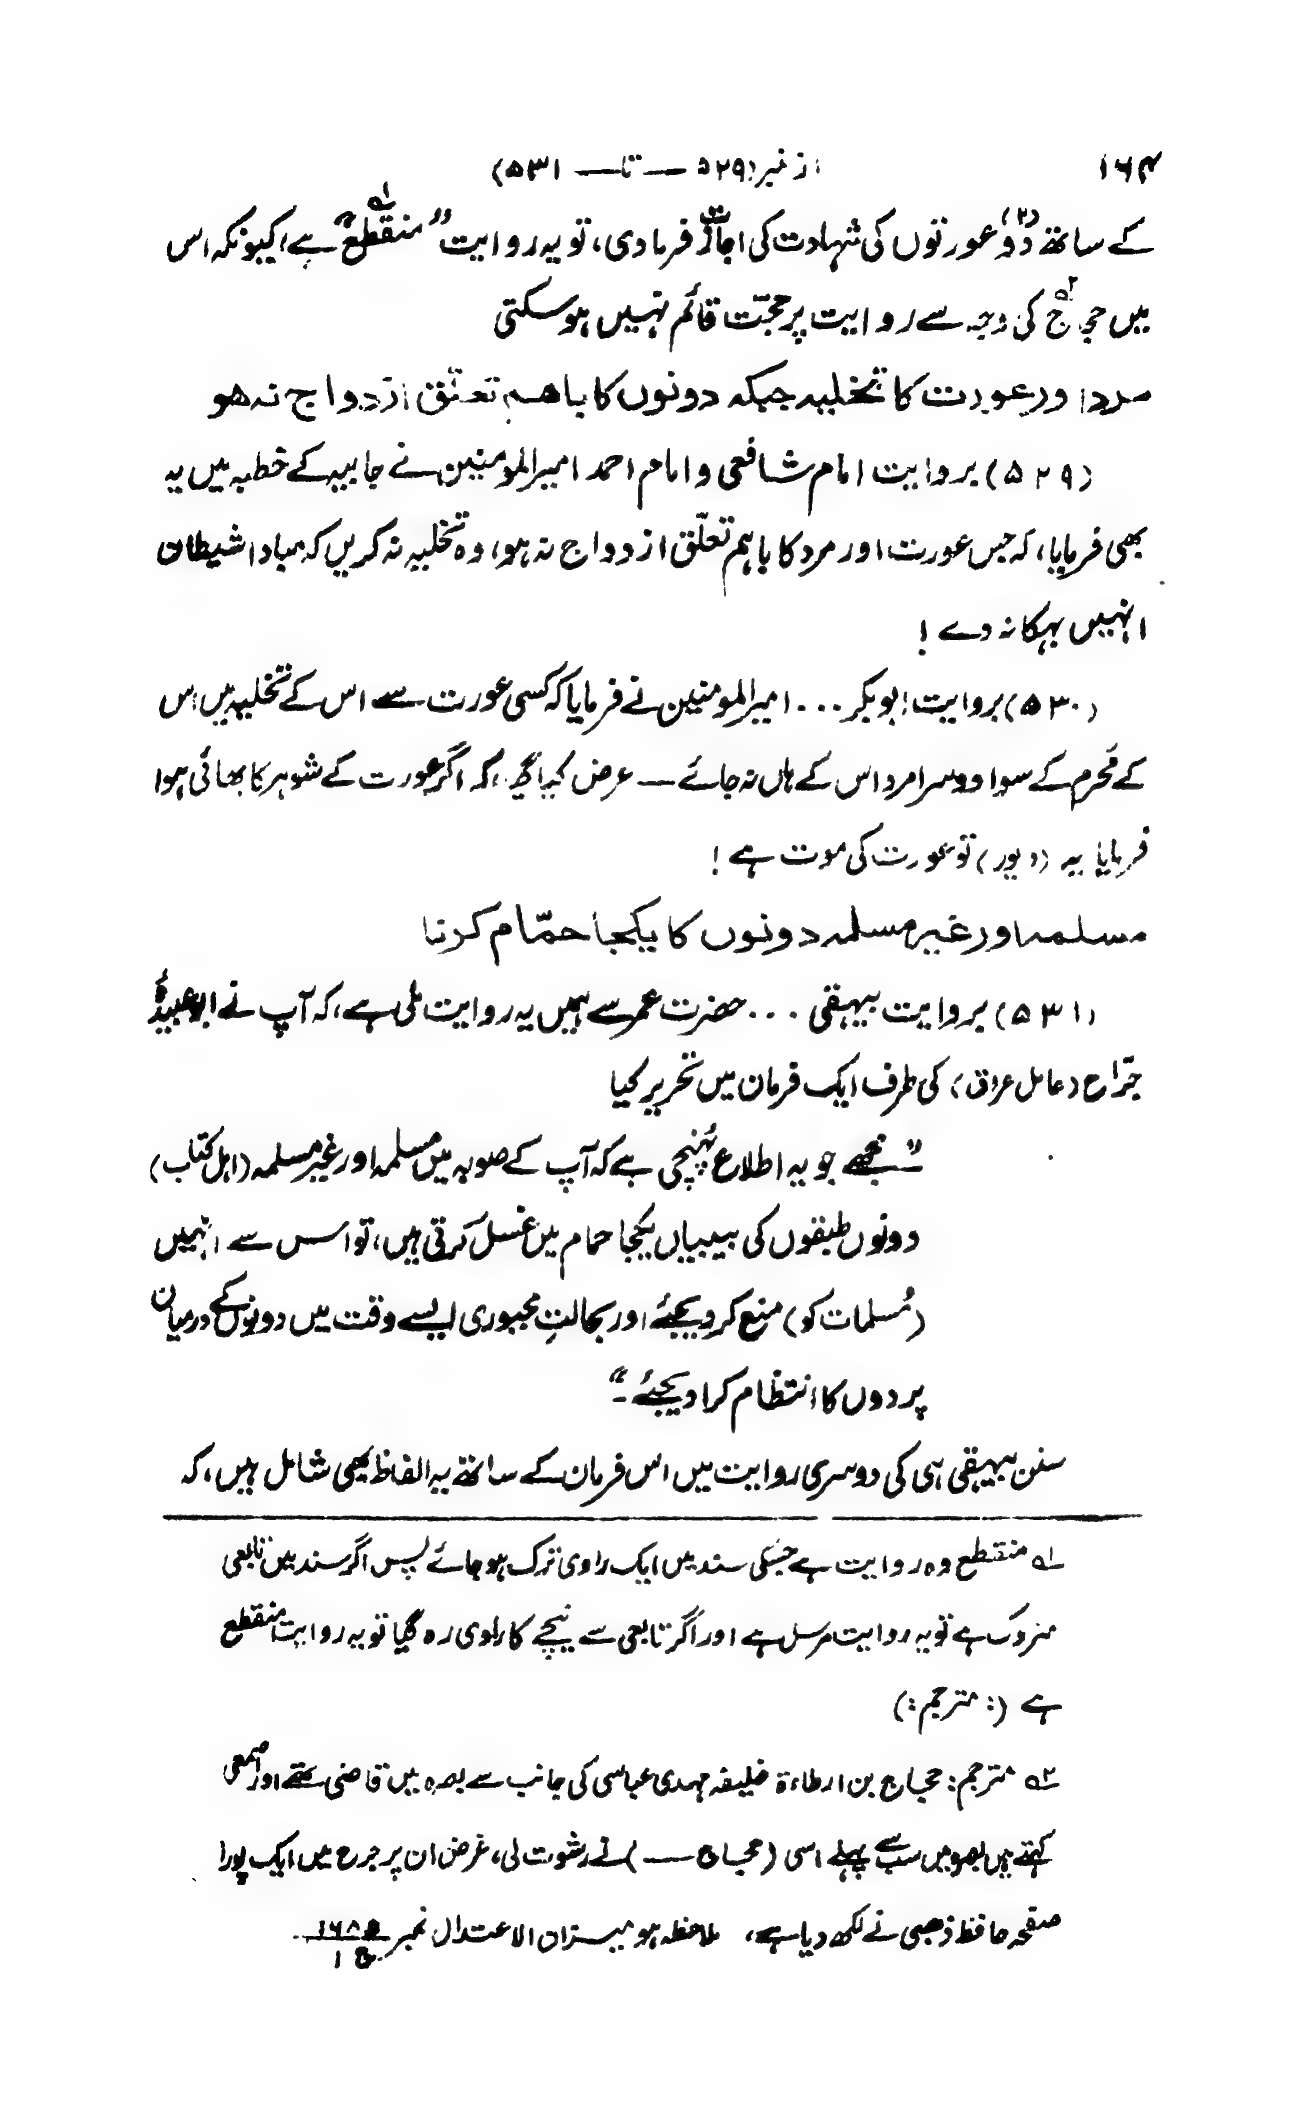 ۱۶۴ از نمبر (۵۲۹ — تا — ۵۳۱)
کے ساتھ دو (۲) عورتوں کی شہادت کی اجازت فرما دی، تو یہ روایت ”منقطع“ ۱؎ ہے، کیونکہ اس
میں حجاج ۲؎ کی وجہ سے روایت پر حجّت قائم نہیں ہو سکتی
مرد اور عورت کا تخلیہ جبکہ دونوں کا باہم تعلّق ازدواج نہ ہو
(۵۲۹) بروایت امام شافعی و امام احمد امیرالمومنین نے جابیہ کے خطبہ میں یہ
بھی فرمایا، کہ جس عورت اور مرد کا باہم تعلّق ازدواج نہ ہو، وہ تخلیہ نہ کریں کہ مبادا شیطان
انہیں بہکا نہ دے!
(۵۳۰) بروایت ابوبکر ... امیرالمومنین نے فرمایا کہ کسی عورت سے اس کے تخلیہ میں اس
کے مَحرم کے سوا دوسرا مرد اس کے ہاں نہ جائے — عرض کیا گیا، کہ اگر عورت کے شوہر کا بھائی ہو!
فرمایا یہ (دیور) تو عورت کی موت ہے!
مسلمہ اور غیر مسلمہ دونوں کا یکجا حمّام کرنا
(۵۳۱) بروایت بیہقی ... حضرت عمر سے ہمیں یہ روایت ملی ہے، کہ آپ نے ابو عبیدہؓ
جرّاح (عامل عراق) کی طرف ایک فرمان میں تحریر کیا
”مجھے جو یہ اطلاع پُہنچی ہے کہ آپ کے صوبہ میں مسلمہ اور غیر مسلمہ (اہل کتاب)
دونوں طبقوں کی بیبیاں یکجا حمام میں غسل کرتی ہیں، تو اس سے انہیں
(مُسلمات کو) منع کر دیجئے اور بحالتِ مجبوری ایسے وقت میں دونوں کے درمیان
پردوں کا انتظام کرا دیجئے۔“
سنن بیہقی ہی کی دوسری روایت میں اس فرمان کے ساتھ یہ الفاظ بھی شامل ہیں، کہ
۱؎ منقطع وہ روایت ہے جسکی سند میں ایک راوی ترک ہو جائے پس اگر سند میں تابعی
متروک ہے تو یہ روایت مرسل ہے اور اگر تابعی سے نیچے کا راوی رہ گیا تو یہ روایت منقطع
ہے (: مترجم :)
۲؎ مترجم: حجاج بن ارطاۃ خلیفہ مہدی عباسی کی جانب سے بصرہ میں قاضی تھے اور اصمعی
کہتے ہیں بصرہ میں سب سے پہلے اسی (حجاج —) نے رشوت لی، غرض ان پر جرح میں ایک پورا
صفحہ حافظ ذہبی نے لکھ دیا ہے، ملاحظہ ہو میزان الاعتدال نمبر ۱۶۸۵ / ج ۱